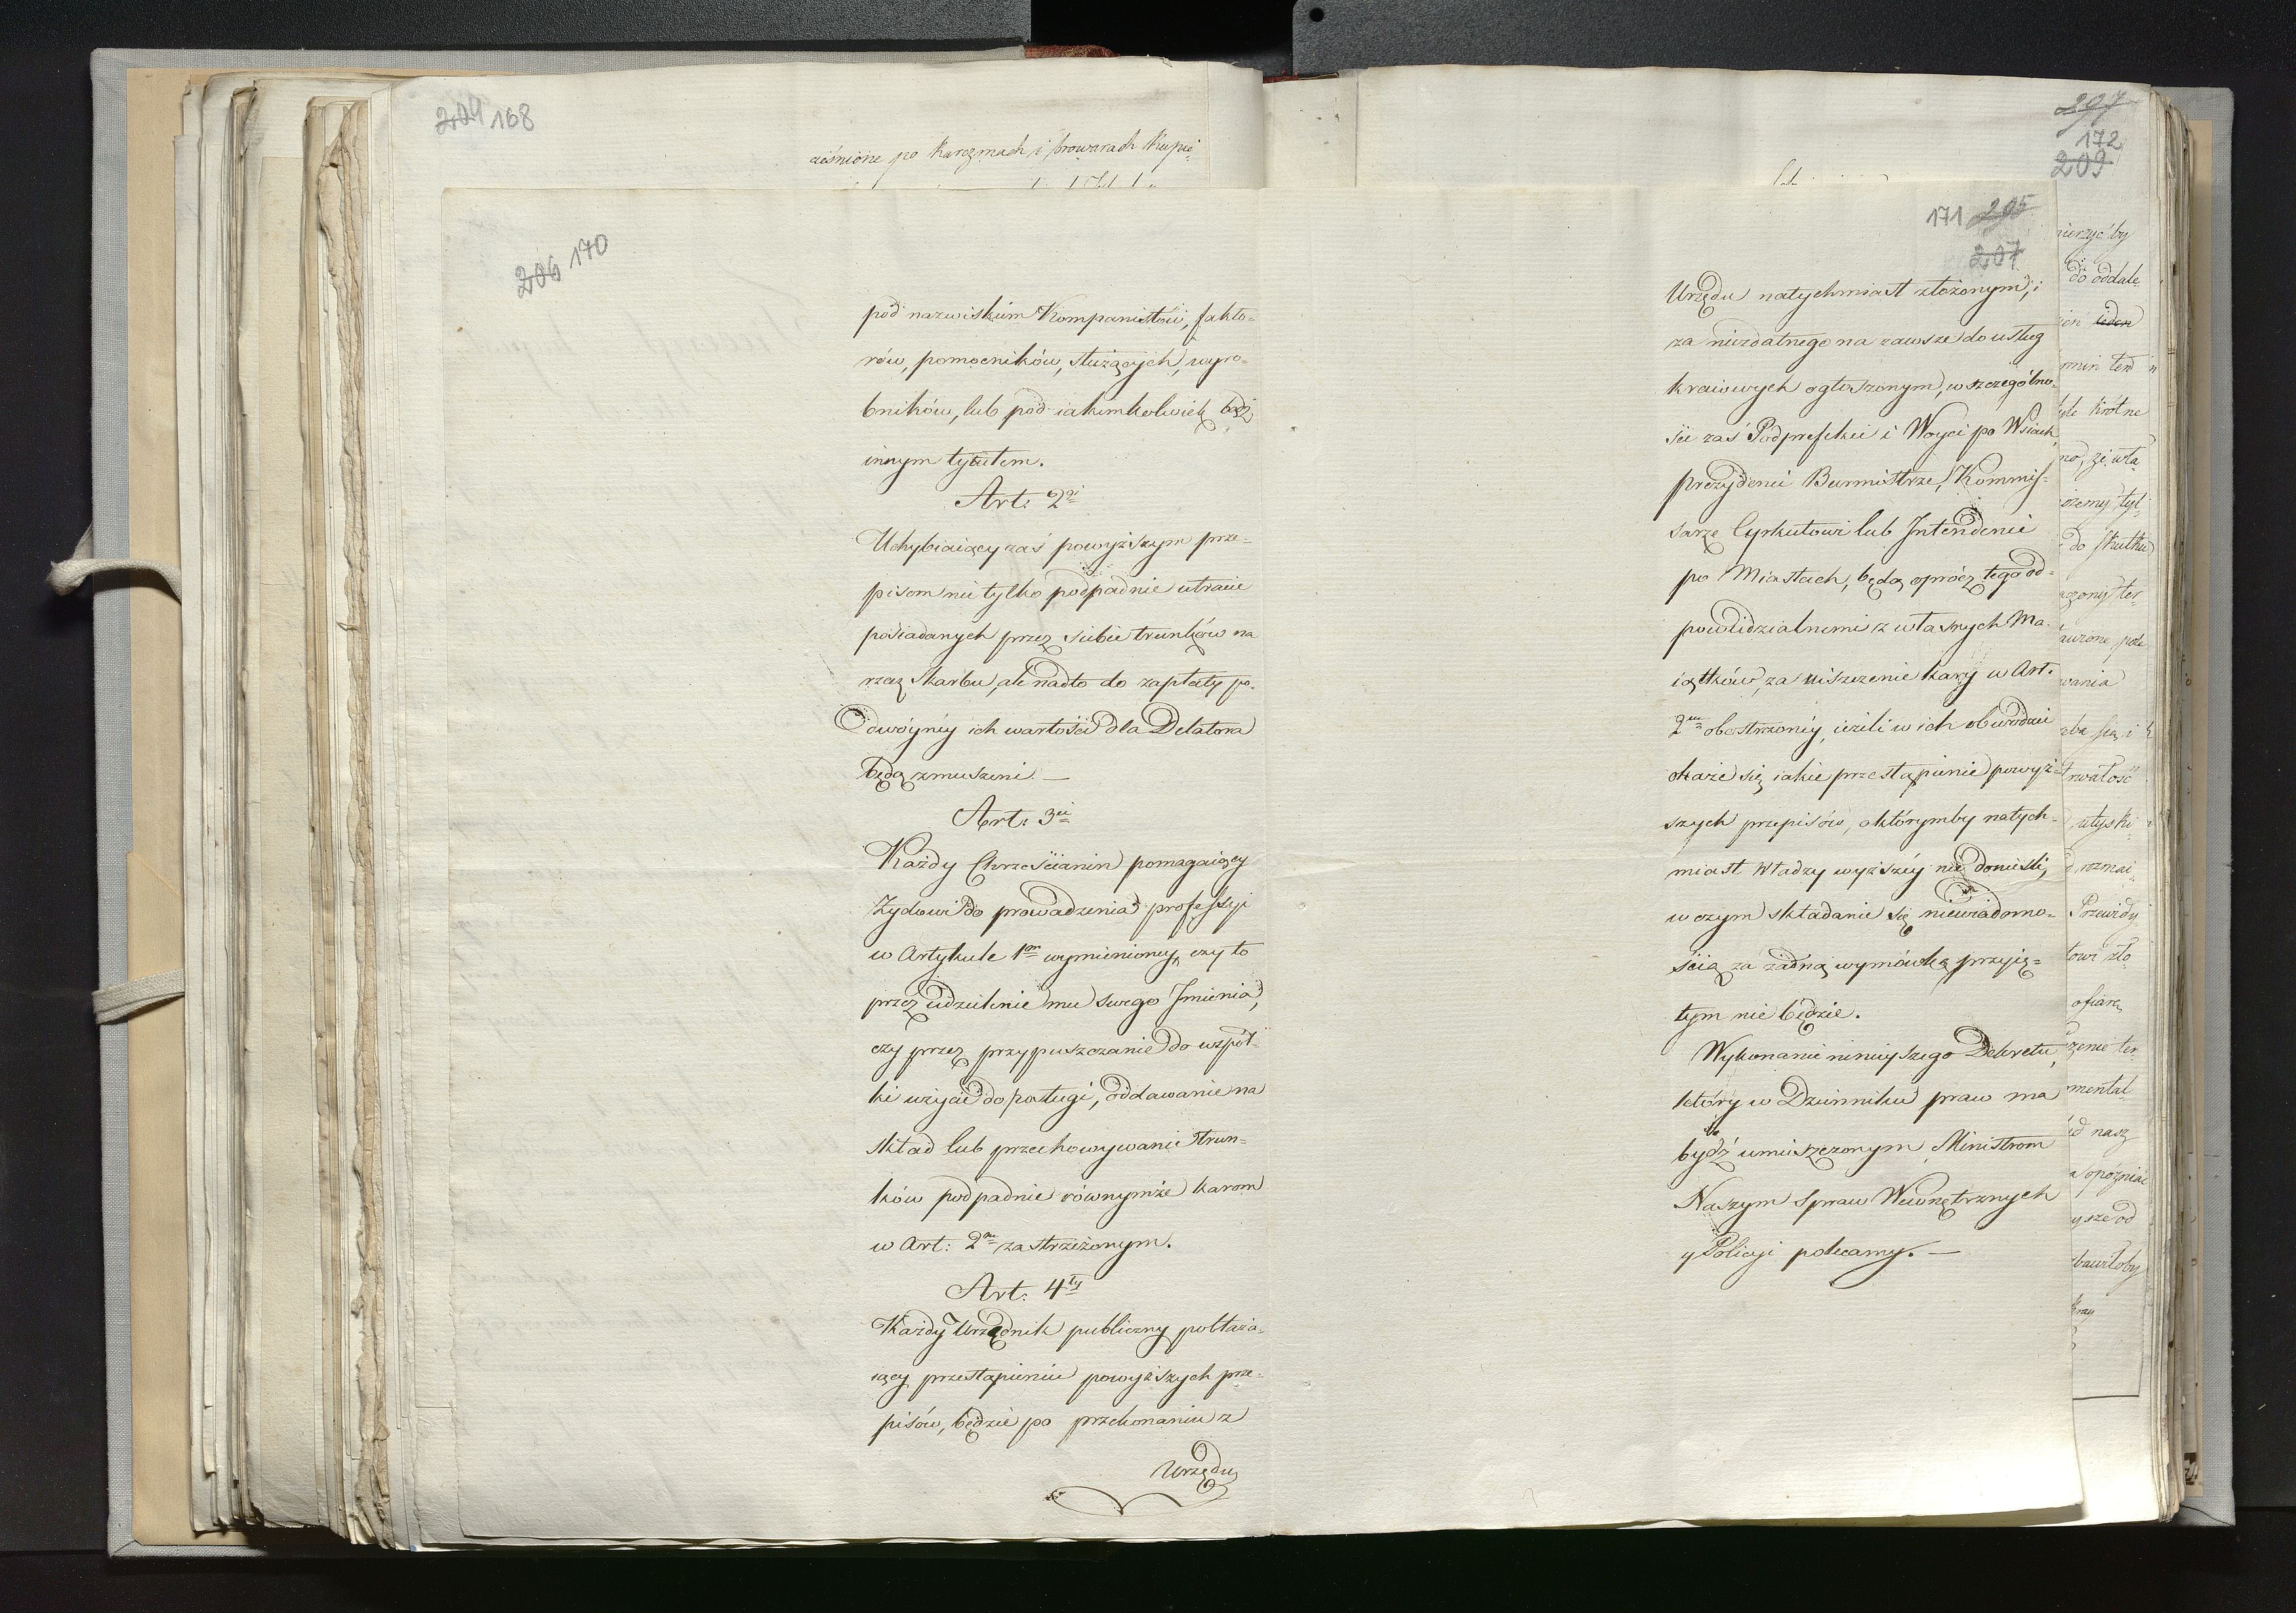 204 168
ciśnione po karczmach i browarach Kupie
206 170
pod nazwiskiem Kompanistów, fakto-
rów, pomocników, służących, wyro-
bników, lub pod iakimkolwiek bądź
innym tytułem.
Art: 2gi
Uchybiaiący zaś powyższym prze-
pisom nie tylko podpadnie utracie
posiadanych przez siebie trunków na
rzecz Skarbu, ale nadto do zapłaty po-
dwóyney ich wartości dla Delatora
będą zmuszeni. —
Art: 3ci
Każdy Chrześcianin pomagaiący
Żydowi do prowadzenia professyi
w Artykule 1m wymienioney, czy to
przez udzielenie mu swego Jmienia,
czy przez przypuszczanie do wspól-
ki użycie do posługi, oddawanie na
skład lub przechowywanie trun-
ków podpadnie równymże karom
w Art: 2m zastrzeżonym.
Art: 4ty
Każdy Urzędnik publiczny pobłaża-
iący przestąpieniu powyższych prze-
pisów, będzie po przekonaniu z
Urzędu
171 205
207
Urzędu natychmiast złożonym, i
za niezdatnego na zawsze do usług
kraiowych ogłoszonym, w szczególno-
ści zaś Podprefekci i Woyci po Wsiach,
prezydenci Burmistrze, Kommis-
sarze Cyrkułowi lub Intendenci
po Miastach, będą oprócz tego od-
powiedzialnemi z własnych Ma-
iątków, za uiszczenie kary w Art.
2m obostrzoney, ieżeli w ich obwodzie
okaże się iakie przestąpienie powyż-
szych przepisów, o którymby natych-
miast Władzy wyższéy nie donieśli,
w czym składanie się niewiadomo-
ścią za żadną wymówkę przyię-
tym nie będzie.
Wykonanie nineyszego Dekretu,
który w Dzienniku praw ma
bydź umieszczonym Ministrom
Naszym Spraw Wewnętrznych
y Policyi polecamy. —
172
209
ierzyć by
do oddale
ieden
krotne
że wła
do skutku
wania
utyski
rozmai
Przewidy
ofiarę
nasz
opóźniać